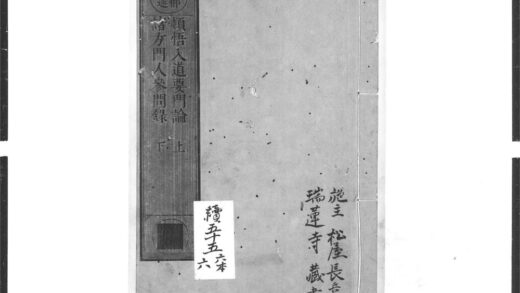 頓悟入道要門論 上
諸方門人參問錄 下
施主 松屋長
瑞蓮寺 藏
續五十五 六本
六